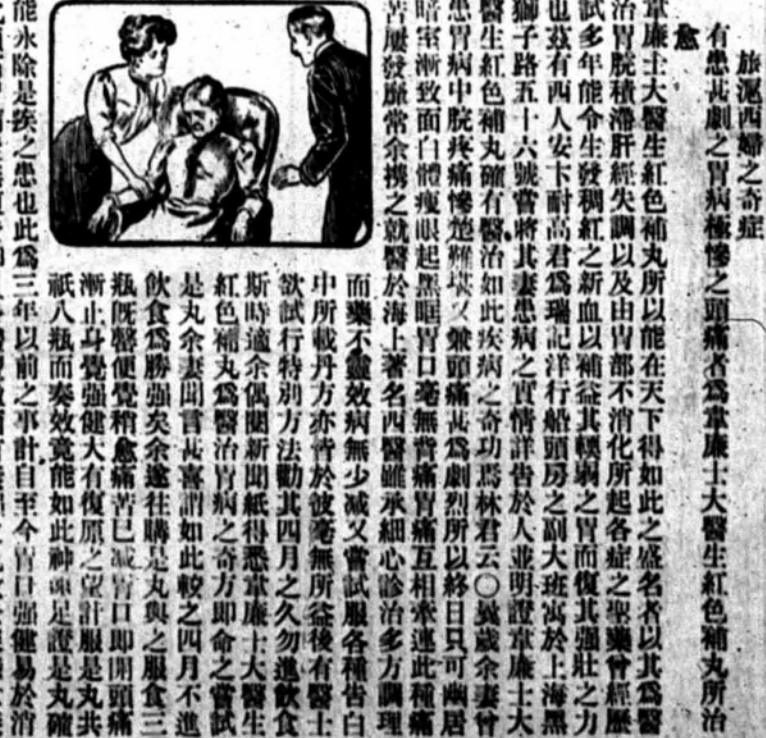 旅滬西婦之奇症
有患甚劇之胃病極慘之頭痛者爲韋廉士大醫生紅色補丸所治
愈
韋廉士大醫生紅色補丸所以能在天下得如此之盛名者以其爲醫
治胃脘積滯肝經失調以及由胃部不消化所起各症之聖藥曾經歷
試多年能令生發稠紅之新血以補益其輭弱之胃而復其強壯之力
也茲有四人安卡耐高君爲瑞記洋行船頭房之副大班寓於上海黑
獅子路五十六號嘗將其妻患病之實情詳告於人並明證韋廉士大
醫生紅色補丸確有醫治如此疾病之奇功焉林君云〇歲余妻曾
患胃病中脘疼痛慘楚難堪又兼頭痛甚爲劇烈所以終日只可幽居
暗室漸致面白體瘦眼起黑眶胃口毫無背痛胃痛互相牽連此種痛
苦屢發靡常余携之就醫於海上著名西醫雖承細心診治多方調理
而藥不靈效病無少減又嘗試服各種告白
中所載丹方亦皆於彼毫無所益後有醫士
欲試行特別方法勸其四月之久勿進飲食
斯時適余偶閱新聞紙得悉韋廉士大醫生
紅色補丸爲醫治胃病之奇方即命之嘗試
是丸余妻聞言甚喜謂如此較之四月不進
飲食爲勝強矣余遂往購是丸與之服食三
瓶既罄便覺稍愈痛苦已減胃口即開頭痛
漸止身覺強健大有復原之望計服是丸共
祇八瓶而奏效竟能如此神速足證是丸確
能永除是疾之患也此爲三年以前之事計自至今胃口強健易於消